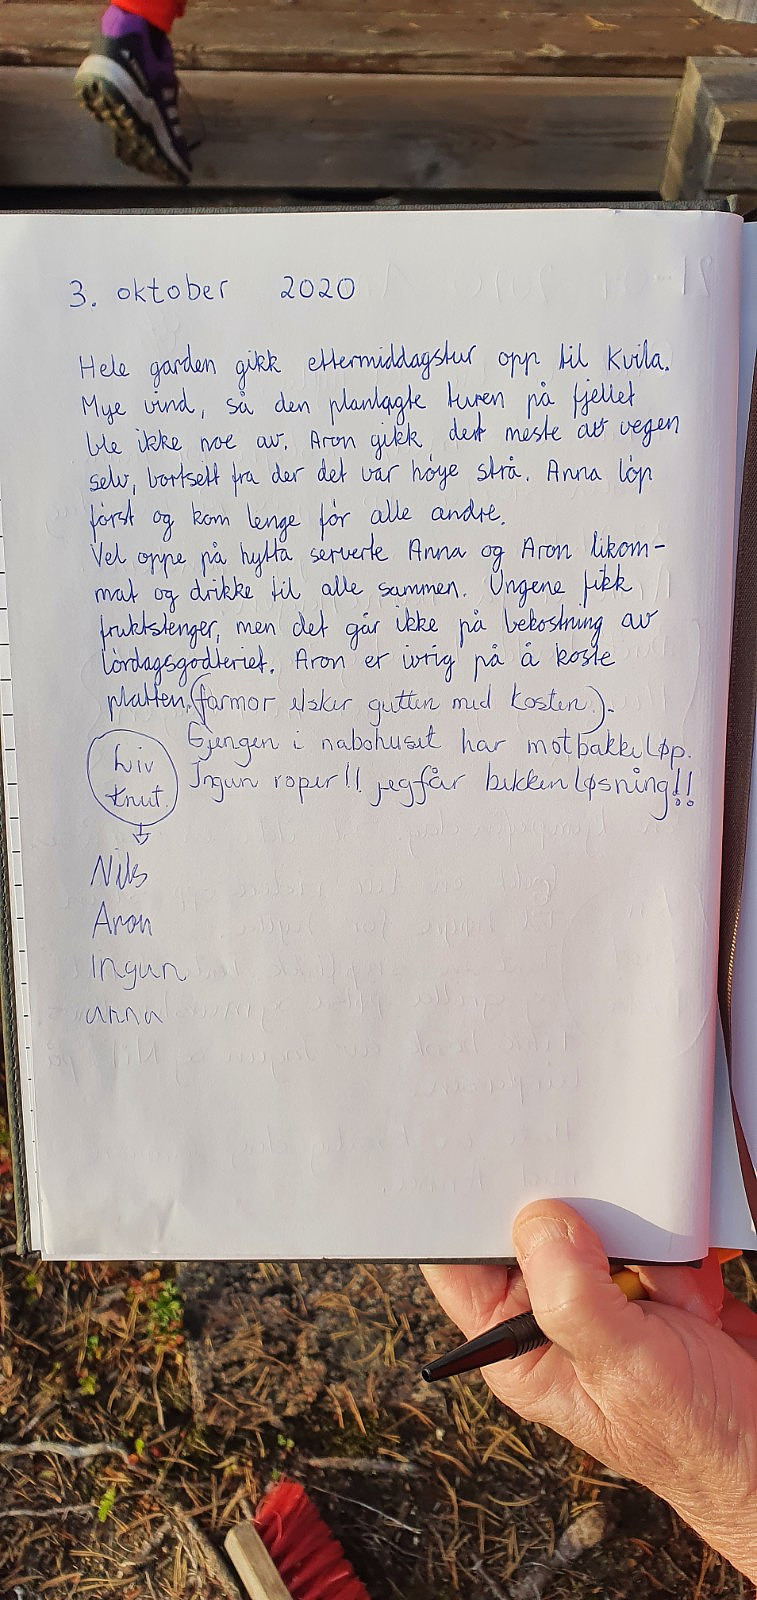 3. oktober 2020
Hele garden gikk ettermiddagstur opp til Kvila.
Mye vind, så den planlagte turen på fjellet
ble ikke noe av. Aron gikk det meste av vegen
selv, bortsett fra der det var høye strå. Anna løp
først og kom lenge før alle andre.
Vel oppe på hytta serverte Anna og Aron likom-
mat og drikke til alle sammen. Ungene fikk
fruktstenger, men det går ikke på bekostning av
lørdagsgodteriet. Aron er ivrig på å koste
platten. (farmor elsker gutten med kosten).
Gjengen i nabohuset har motbakkeløp.
Ingun roper!! jeg får bekkenløsning!!
Liv
Knut
Nils
Aron
Ingun
anna